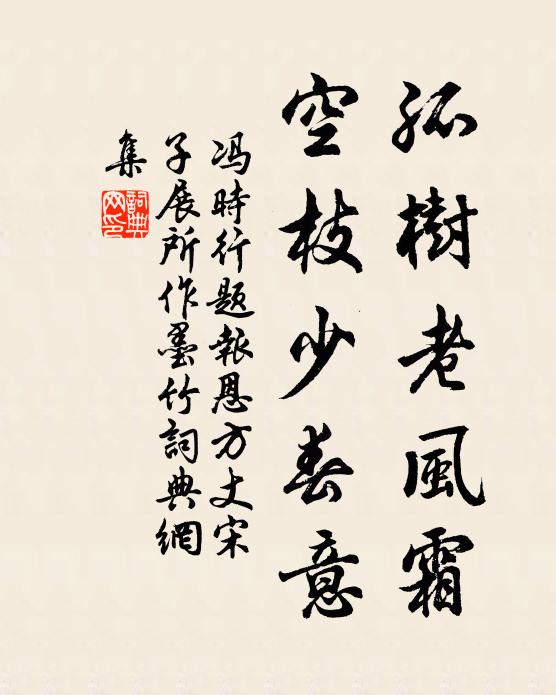 孤樹老風霜
空枝少春意
冯時行题報恩方丈宋
子展所作墨竹詞典網
集
詞典网印